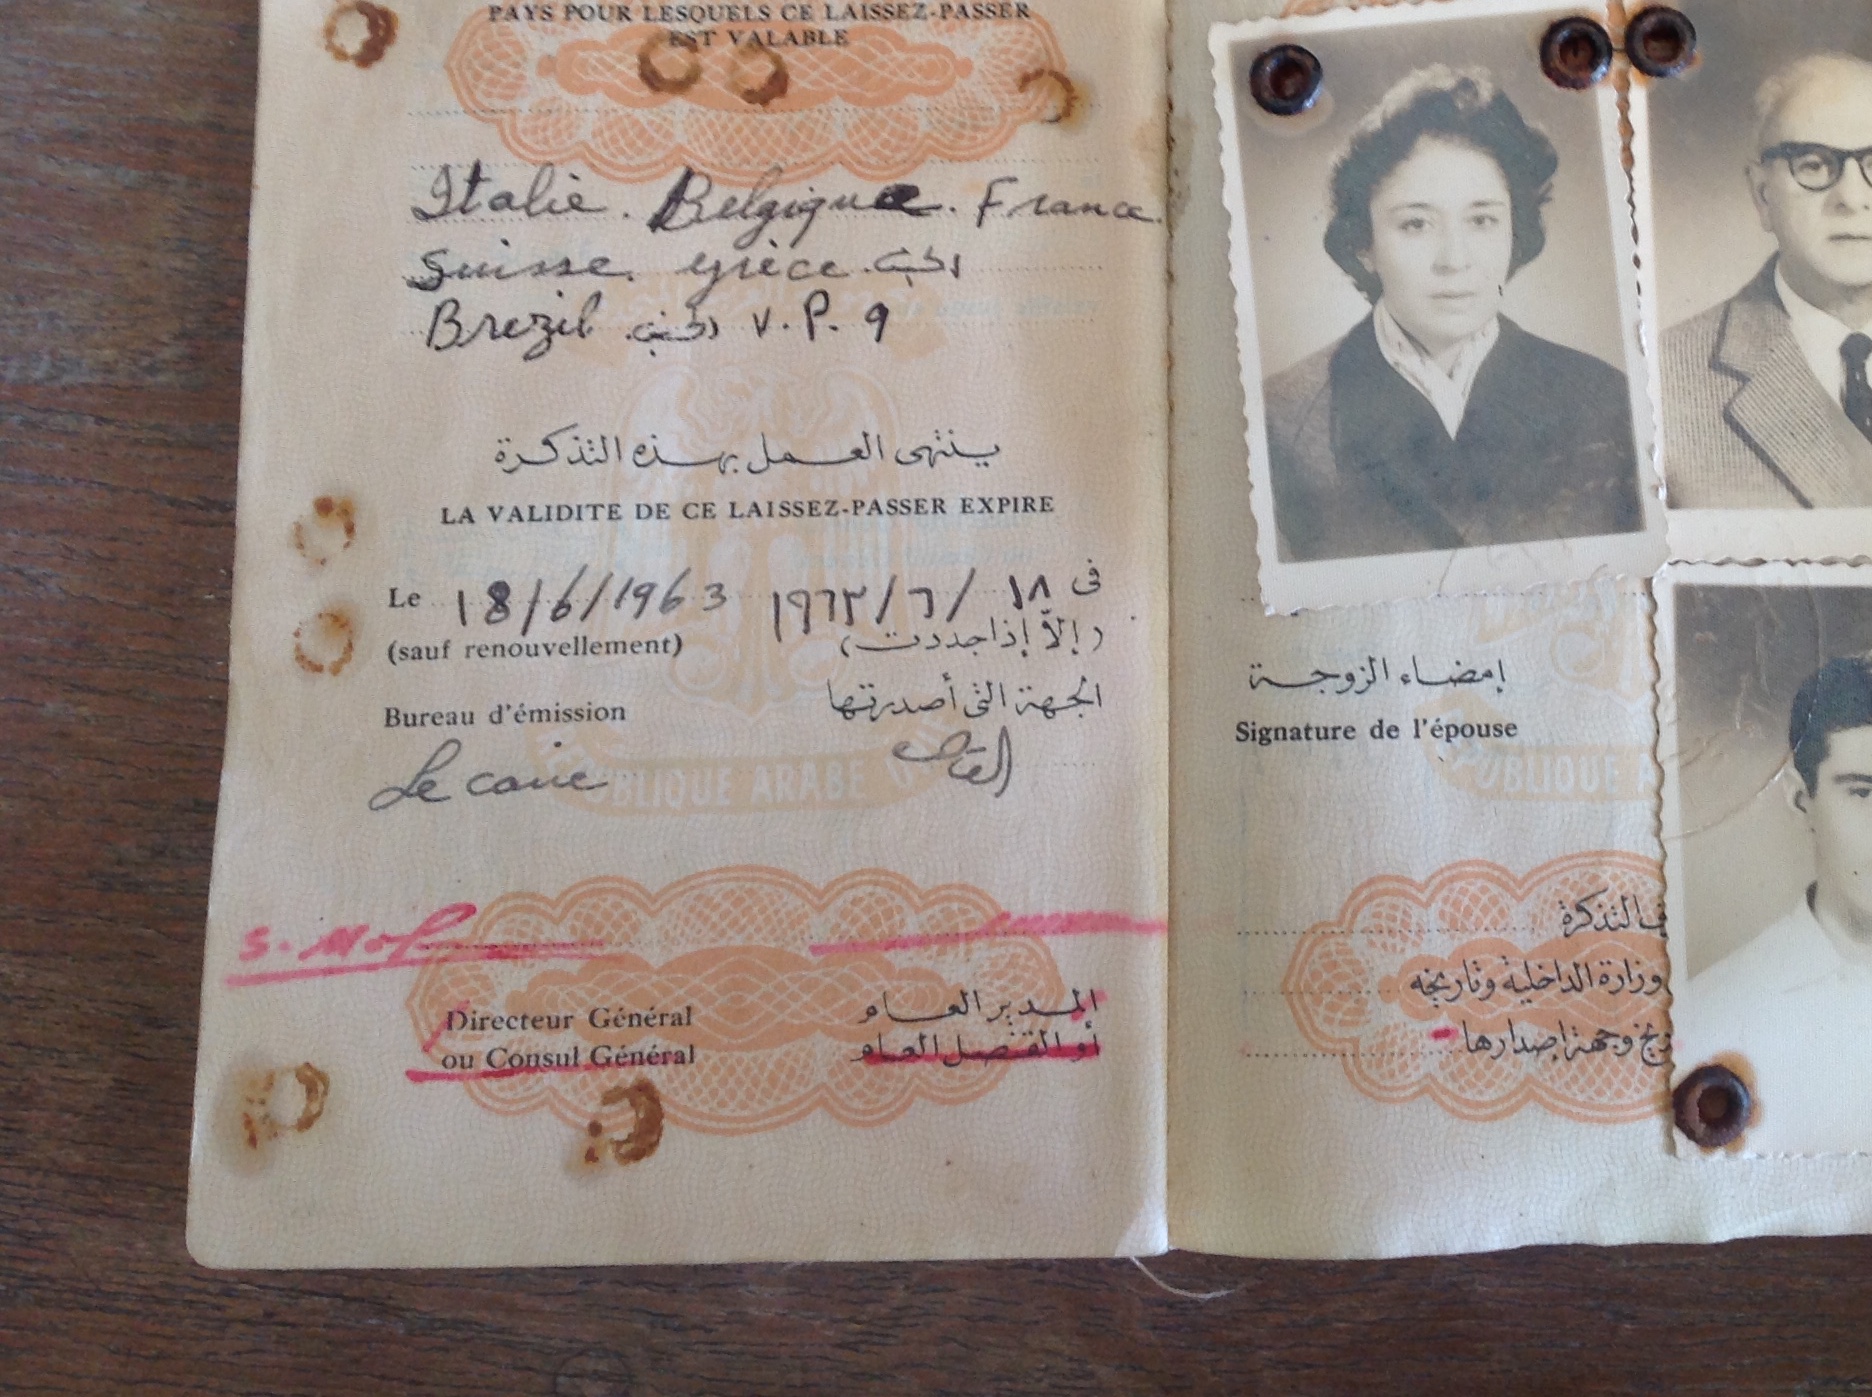 PAYS POUR LESQUELS CE LAISSEZ-PASSER
EST VALABLE
Italie. Belgique. France.
Suisse. Grèce.
Brezil V. P. 9
ينتهى العمل بهذه التذكرة
LA VALIDITE DE CE LAISSEZ-PASSER EXPIRE
Le 18/6/1963 فى ١٨/٦/١٩٦٣
(sauf renouvellement) (إلا إذا جددت)
Bureau d'émission الجهة التى أصدرتها
Le caire القاهرة
Directeur Général المدير العام
ou Consul Général أو القنصل العام
إمضاء الزوجة
Signature de l'épouse
REPUBLIQUE ARABE
التذكرة
وزارة الداخلية وتاريخه
وجهة إصدارها